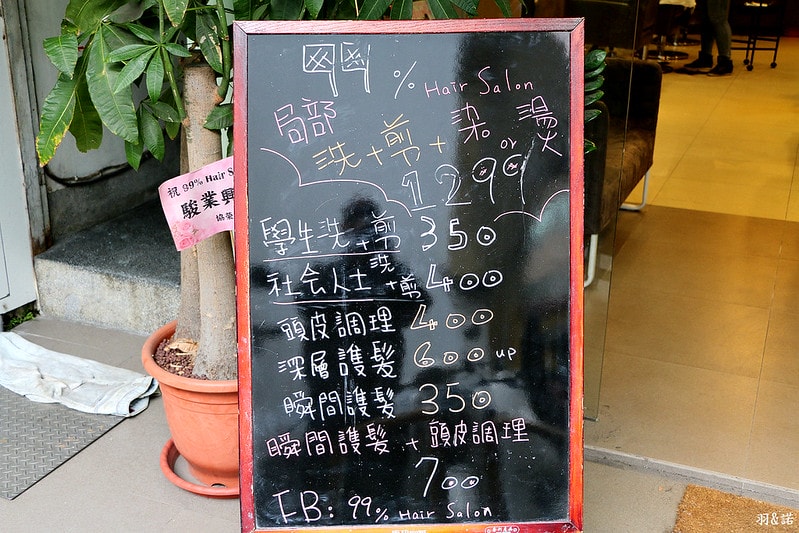 99% Hair Salon
局部
洗+剪+染 or 燙
1299
學生洗+剪 350
社会人士洗+剪 400
頭皮調理 400
深層護髮 600 up
瞬間護髮 350
瞬間護髮+頭皮調理
700
FB: 99% Hair Salon
祝 99% Hair S
駿業興
羽&諾